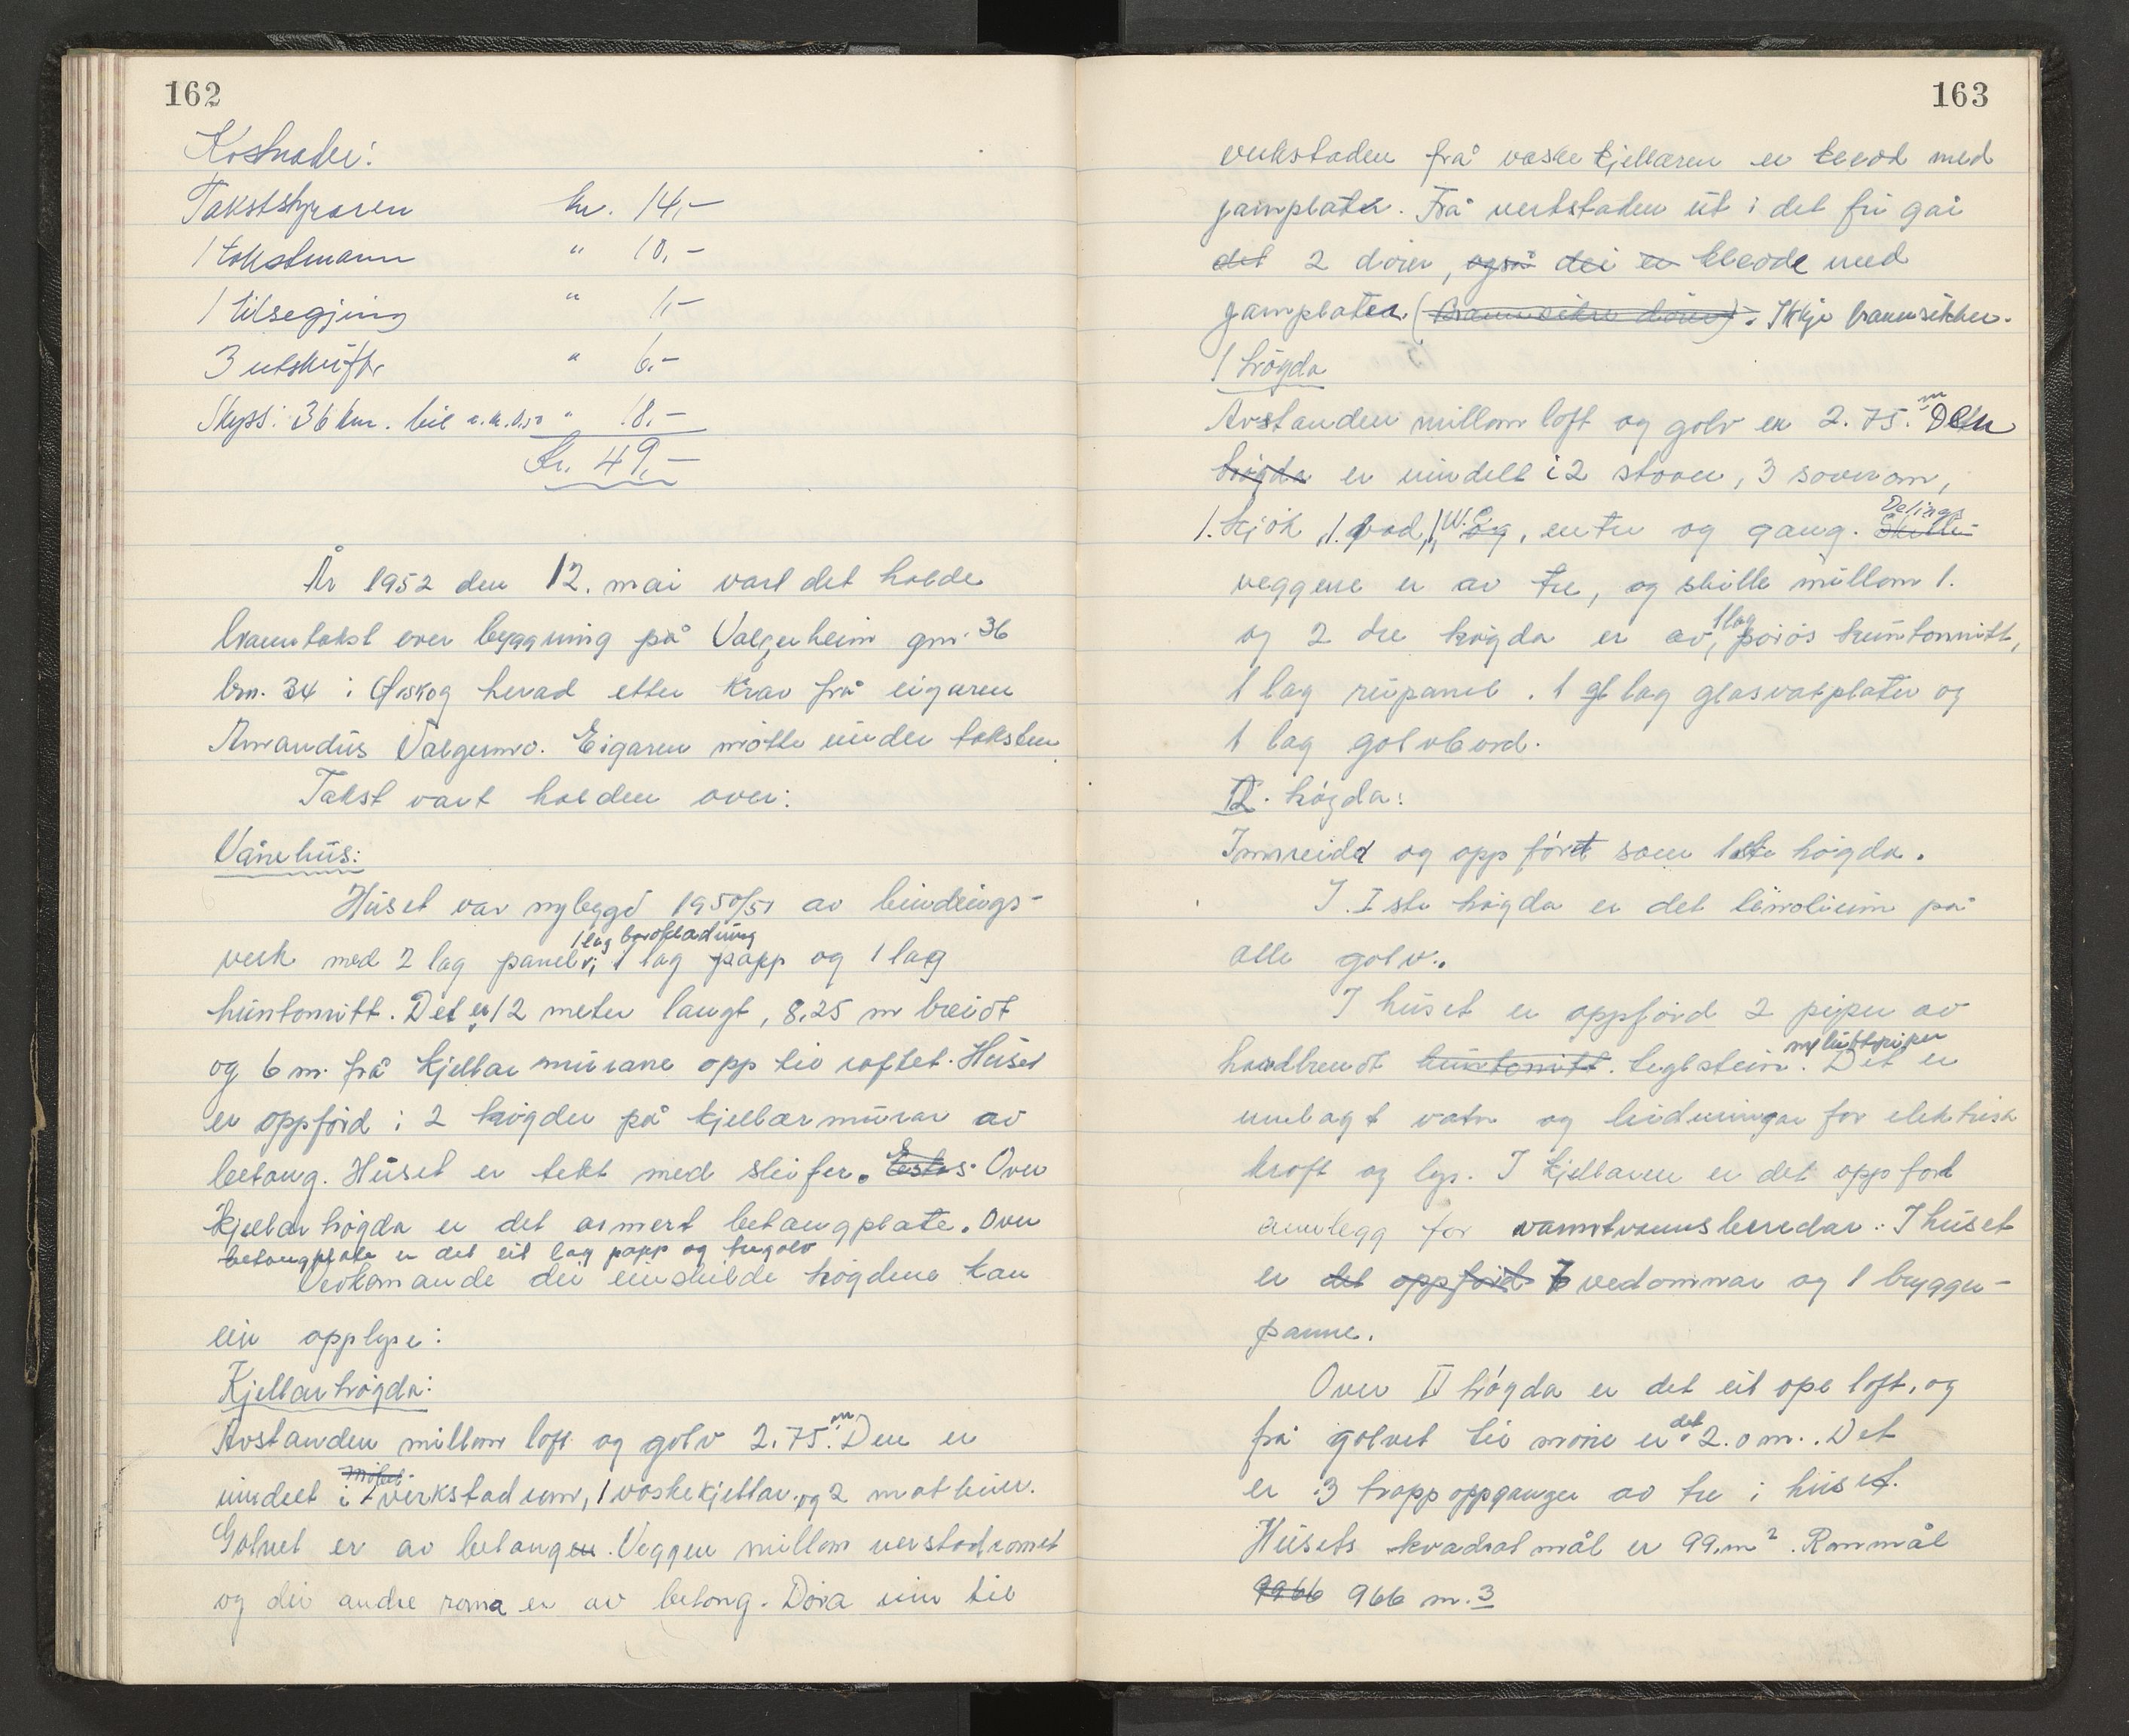 162
Kostnader:
Takststyraren kr. 14,-
1 takstmann " 10,-
1 tilsegjing " 1,-
3 utskrifter " 6.-
Skyss: 36 km. bil a.kr. 0,50 " 18.-
Kr. 49,-
År 1952 den 12. mai vart det halde
branntakst over byggning på Valgerheim gnr. 36
brn. 34 i Ørskog herad etter krav frå eigaren
Amandus Valgermo. Eigaren møtte under taksten.
Takst vart halden over:
Vånehus:
Huset var nybygd 1950/51 av bindings-
1 lag
verk med 2 lag panel, 1 lag papp og 1 lag
huntonitt. Det er 12 meter langt, 8,25 m breidt
og 6 m. frå kjellarmurane opp til raftet. Huset
er oppförd i 2 högder på kjellarmurar av
betong. Huset er tekt med skifer. Over
kjellarhögda er det armert betongplate. Over
betongplate er det eit lag papp og tregolv
Vedkomande dei einskilde högdene kan
ein opplyse:
Kjellarhögda:
Avstanden millom loft og golv 2.75 m. Den er
inndelt i 1 verkstadrom, 1 vaskekjellar og 2 matbuer.
Golvet er av betong. Veggen millom verstadromet
og dei andre roma er av betong. Döra inn til
163
verkstaden frå vaskekjellaren er kledd med
jarnplater. Frå verkstaden ut i det fri går
det 2 dörer, også dei er kledde med
jarnplater. (Brannsikre dörer). Ikkje brannsikker.
1 högda
Avstanden millom loft og golv er 2.75. m Den
högda er inndelt i 2 stover, 3 soverom,
1. kjök, 1. bad, 1 W.C. og, entre og gang. Delings
veggene er av tre, og skille millom 1.
og 2 dre högda er av 1 lag porös huntonitt,
1 lag rupanel. 1 gl lag glasvatplater og
1 lag golvbord.
II. högda:
Innreidd og oppfört som 1ste högda.
I. I ste högda er det linolium på
alle golv.
I huset er oppförd 2 piper av
m/luftpiper
hardbrendt huntonitt. teglstein. Det er
innlagt vatn og leidningar for elektrisk
kraft og lys. I kjellaren er det oppfört
annlegg for varmtvannsberedar. I huset
er det oppförd 7 vedomnar og 1 brygge-
panne.
Over II högda er det eit ope loft, og
frå golvet til möne er det 2.0 m. Det
er 3 trappoppganger av tre i huset.
Husets kvadratmål er 99,m². Rommål
9966 966 m.3